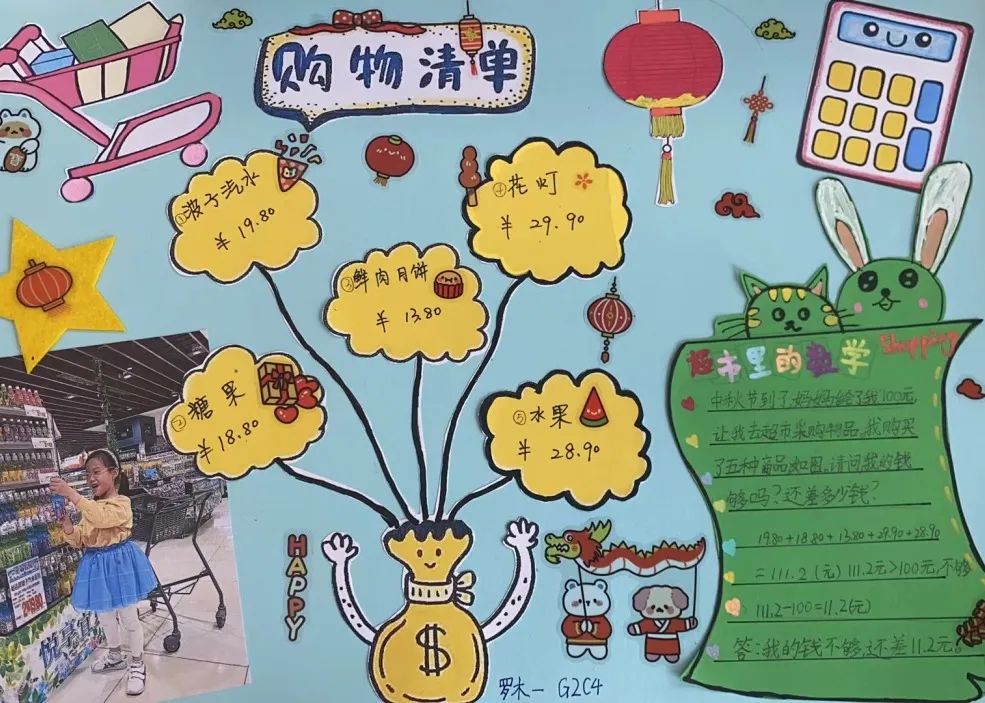 购物清单
①波子汽水
¥ 19.80
④花灯
¥ 29.90
③鲜肉月饼
¥ 13.80
②糖果
¥ 18.80
⑤水果
¥ 28.90
$
HAPPY
罗木一 G2C4
超市里的数学 Shopping
中秋节到了,妈妈给了我100元,
让我去超市采购物品,我购买
了五种商品如图,请问我的钱
够吗?还差多少钱?
19.80+18.80+13.80+29.90+28.90
=111.2(元) 111.2元>100元,不够
111.2-100=11.2(元)
答:我的钱不够,还差11.2元。